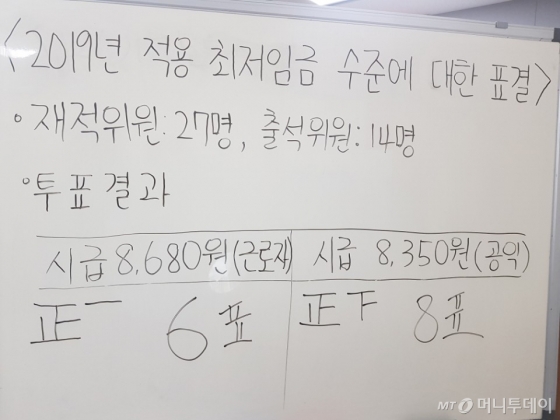 <2019년 적용 최저임금 수준에 대한 표결>
• 재적위원: 27명, 출석위원: 14명
• 투표결과
시급 8,680원(근로자) 시급 8,350원(공익)
正一 6표 正下 8표
MT 머니투데이